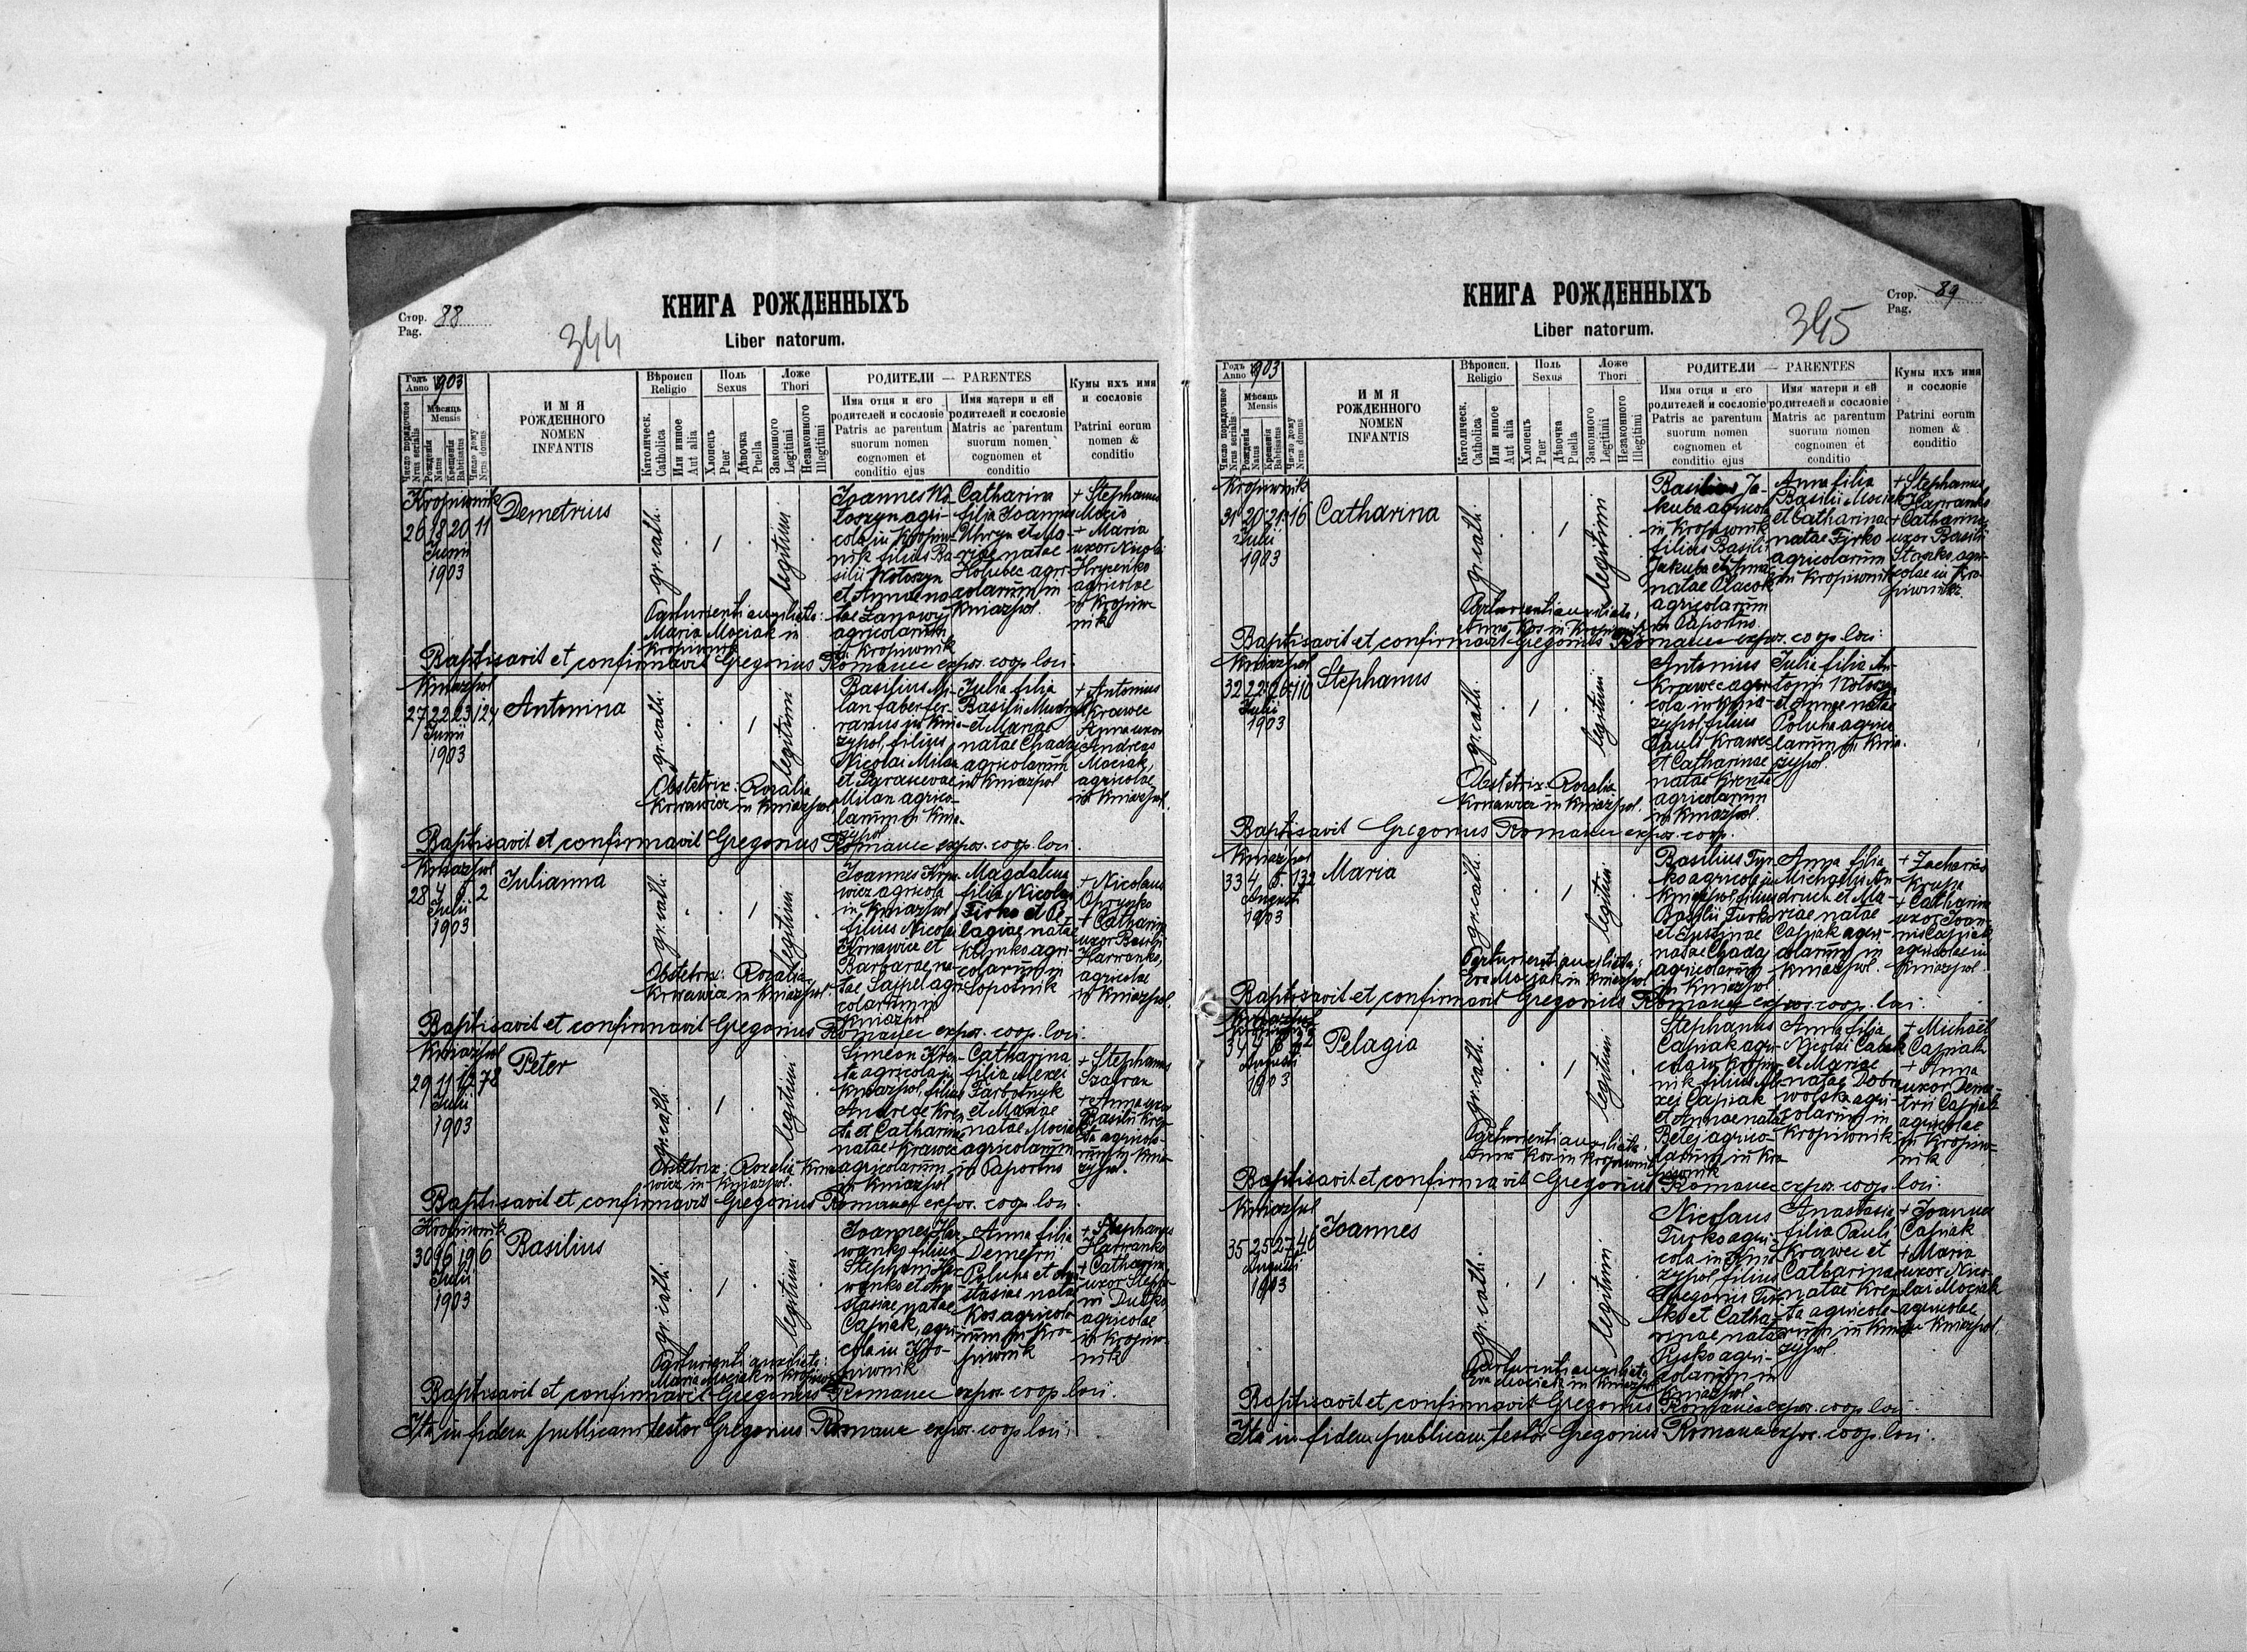 Стор. Pag. 88
КНИГА РОЖДЕННЫХЪ
344
Liber natorum.
Годъ Anno 1903
Мѣсяць Mensis
Число порядочное Nrus serialis
Рожденія Natus
Крещенія Babtisatus
Число дому Nrus domus
И М Я
РОЖДЕННОГО
NOMEN
INFANTIS
Вѣроисп Religio
Католическ. Catholica
Или инное Aut alia
Поль Sexus
Хлопецъ Puer
Дѣвочка Puella
Ложе Thori
Законного Legitimi
Незаконного Illegitimi
РОДИТЕЛИ — PARENTES
Имя отця и его
родителей и сословіе
Patris ac parentum
suorum nomen
cognomen et
conditio ejus
Имя матери и ей
родителей и сословіе
Matris ac parentum
suorum nomen
cognomen et
conditio
Кумы ихъ имя
и сословіе
Patrini eorum
nomen &
conditio
Kropiwnik
26 18 20 11
Junii
1903
Demetrius
gr. cath.
1
legitimi
Joannes Wo-
łoszyn agri-
cola in Kropiw-
nik filius Ba-
silii Wołoszyn
et Annae na-
tae Łanowy
agricolarum
in Kropiwnik
Catharina
filia Joannes
Uhryn et Ma-
riae natae
Hołubec agri-
colarum in
Kniazpol.
+ Stephanus
Mocio
+ Maria
uxor Nicolai
Hrycenko
agricolae
in Kropiw-
nik
Parturienti auxiliata:
Maria Mociak in
Kropiwnik
Baptisavit et confirmavit Gregorius Romanec expos. coop. loci.
Kniazpol
27 22 23 124
Junii
1903
Antonina
gr. cath.
1
legitimi
Basilius Mi-
lan faber fer-
rarius in Knia-
zpol, filius
Nicolai Milan
et Parascevae
Milan agrico-
larum in Knia-
zpol
Julia filia
Basilii
et Mariae
natae Chada
agricolarum
in Kniazpol
+ Antonius
Krawec
Anna uxor
Andreas
Mociak,
agricolae
in Kniazpol.
Obstetrix: Rozalia
Krwawicz in Kniazpol
Baptisavit et confirmavit Gregorius Romanec expos. coop. loci.
Kniazpol
28 4 6 2
Julii
1903
Julianna
gr. cath.
1
legitimi
Joannes Krwa-
wicz agricola
in Kniazpol,
filius Nicolai
Krwawicz et
Barbarae na-
tae Sajpel agri-
colarum in
Kniazpol
Magdalena
filia Nicolai
Firko et Pe-
lagiae natae
Klymko agri-
colarum in
Sopotnik
+ Nicolaus
Opryszko
+ Catharina
uxor Basilii
Hawranko,
agricolae
in Kniazpol.
Obstetrix: Rozalia
Krwawicz in Kniazpol.
Baptisavit et confirmavit Gregorius Romanec expos. coop. loci.
Kniazpol
29 11 12 78
Julii
1903
Peter
gr. cath.
1
legitimi
Simeon Krep-
ta agricola in
Kniazpol, filius
Andreae Krep-
ta et Catharinae
natae Krawec
agricolarum
in Kniazpol
Catharina
filia Alexei
Farbotnyk
et Mariae
natae Mociak
agricolarum
in Paportno
+ Stephanus
Szafran
+ Anna uxor
Basilii Krep-
ta agricola-
rum in Knia-
zpol.
Obstetrix: Rozalia Krwa-
wicz in Kniazpol.
Baptisavit et confirmavit Gregorius Romanec expos. coop. loci.
Kropiwnik
30 16 19 6
Julii
1903
Basilius
gr. cath.
1
legitimi
Joannes Ha-
wranko filius
Stephani Ha-
wranko et Ana-
stasiae natae
Capiak, agri-
cola in Kro-
piwnik
Anna filia
Demetrii
Poluha et Ana-
stasiae natae
Kos agricola-
rum in Kro-
piwnik
+ Stephanus
Hawranko
+ Catharina
uxor Stepha-
ni Dutko
agricolae
in Kropiw-
nik
Parturienti auxiliata:
Maria Mociak in Kropiwnik
Baptisavit et confirmavit Gregorius Romanec expos. coop. loci.
Ita in fidem publicam testor Gregorius Romanec expos. coop. loci.
КНИГА РОЖДЕННЫХЪ
Стор. Pag. 89
345
Liber natorum.
Годъ Anno 1903
Мѣсяць Mensis
Число порядочное Nrus serialis
Рожденія Natus
Крещенія Babtisatus
Число дому Nrus domus
И М Я
РОЖДЕННОГО
NOMEN
INFANTIS
Вѣроисп. Religio
Католическ. Catholica
Или инное Aut alia
Поль Sexus
Хлопецъ Puer
Дѣвочка Puella
Ложе Thori
Законного Legitimi
Незаконного Illegitimi
РОДИТЕЛИ — PARENTES
Имя отця и его
родителей и сословіе
Patris ac parentum
suorum nomen
cognomen et
conditio ejus
Имя матери и ей
родителей и сословіе
Matris ac parentum
suorum nomen
cognomen et
conditio
Кумы ихъ имя
и сословіе
Patrini eorum
nomen &
conditio
Kropiwnik
31 20 21 16
Julii
1903
Catharina
gr. cath.
1
legitimi
Basilius Ja-
kuba agricola
in Kropiwnik
filius Basilii
Jakuba et Annae
natae Placok
agricolarum
in Paportno.
Anna filia
Basilii Mociak
et Catharinae
natae Firko
agricolarum
in Kropiwnik
+ Stephanus
Hawranko
+ Catharina
uxor Basilii
agri-
colae in Kro-
piwnik.
Parturienti auxiliata:
Anna Kos in Kropiwnik
Baptisavit et confirmavit Gregorius Romanec expos. coop. loci.
Kniazpol
32 22 26 110
Julii
1903
Stephanus
gr. cath.
1
legitimi
Antonius
Krawec agri-
cola in Knia-
zpol, filius
Pauli Krawec
et Catharinae
natae Krepta
agricolarum
in Kniazpol.
Julia filia An-
tonii Wołoszyn
et Annae natae
Poluha agrico-
larum in Knia-
zpol
Obstetrix: Rozalia
Krwawicz in Kniazpol.
Baptisavit Gregorius Romanec expos. coop.
Kniazpol
33 4 5 132
Augusti
1903
Maria
gr. cath.
1
legitimi
Basilius Tur-
ko agricola in
Kniazpol, filius
Basilii Turko
et Justinae
natae Chada
agricolarum
in Kniazpol
Anna filia
Michaelis An-
druch et Ma-
riae natae
Capiak agri-
colarum in
Kniazpol.
+ Zacharias
Krupa
+ Catharina
uxor Joan-
nis Capiak,
agricolae in
Kniazpol.
Parturienti auxiliata:
Eva Mociak in Kniazpol
Baptisavit et confirmavit Gregorius Romanec expos. coop. loci.
Kropiwnik
Augusti
1903
Pelagia
gr. cath.
1
legitimi
Stephanus
Capiak agri-
cola in Kropiw-
nik filius Ale-
xei Capiak
et Annae natae
Betej agrico-
larum in Kro-
piwnik
Anna filia
Nicolai Cabak
et Mariae
natae Dobro-
wolska agri-
colarum in
Kropiwnik
+ Michaël
Capiak
+ Anna
uxor Deme-
trii Capiak
agricolae
in Kropiw-
nik
Parturienti auxiliata:
Anna Kos in Kropiwnik
Baptisavit et confirmavit Gregorius Romanec expos. coop. loci.
Kniazpol
35 25 27 46
Augusti
1903
Joannes
gr. cath.
1
legitimi
Nicolaus
Turko agri-
cola in Knia-
zpol filius
Gregorii Tur-
ko et Catha-
rinae natae
Rysko agri-
colarum in
Kniazpol
Anastasia
filia Pauli
Krawec et
Catharinae
natae Krep-
ta agricola-
rum in Knia-
zpol.
+ Joannes
Capiak
+ Maria
uxor Nico-
lai Mociak
agricolae
in Kniazpol.
Parturienti auxiliata:
Eva Mociak in Kniazpol
Baptisavit et confirmavit Gregorius Romanec expos. coop. loci.
Ita in fidem publicam testor Gregorius Romanec expos. coop. loci.